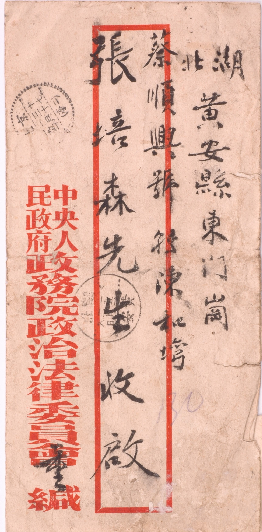 湖北黄安縣東门崗
蔡順興號
張培森先生收啟
中央人民政府政務院政治法律委員會 緘